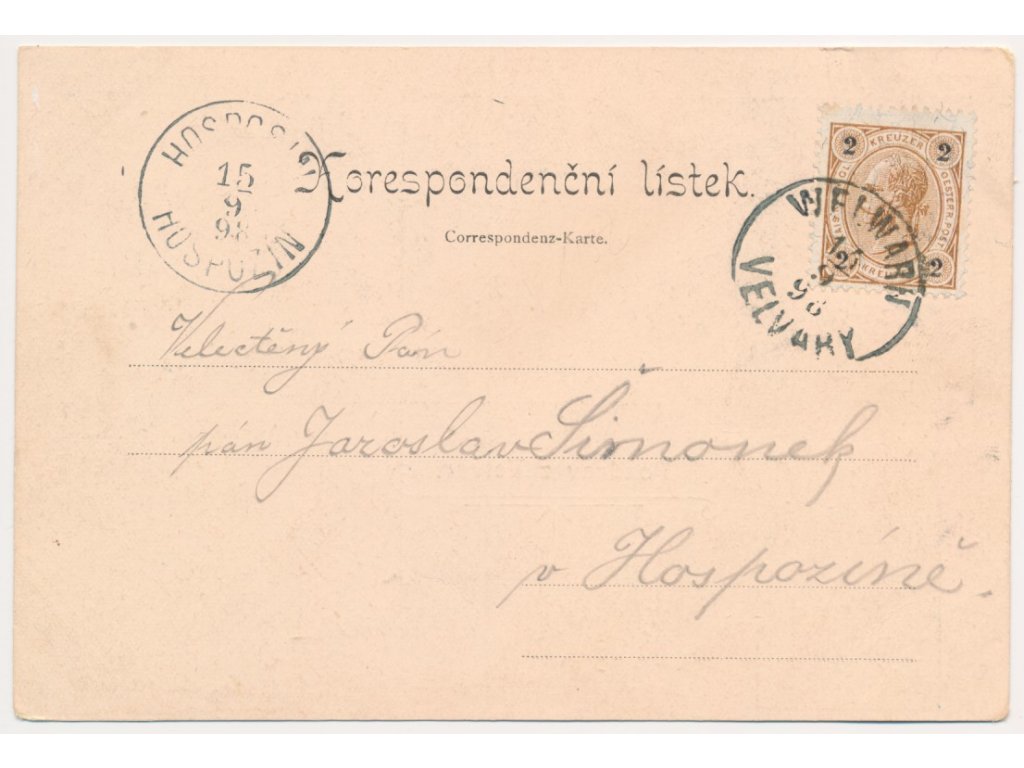 HOSPOSIN
15
9
98
HOSPOZIN
Korespondenční lístek.
Correspondenz-Karte.
2 KREUZER 2
OESTERR. POST
2 KREUZER 2
WELWARN
15
9
98
VELVARY
Velectěný Pán
pán Jaroslav Šimonek
v Hospozíně.